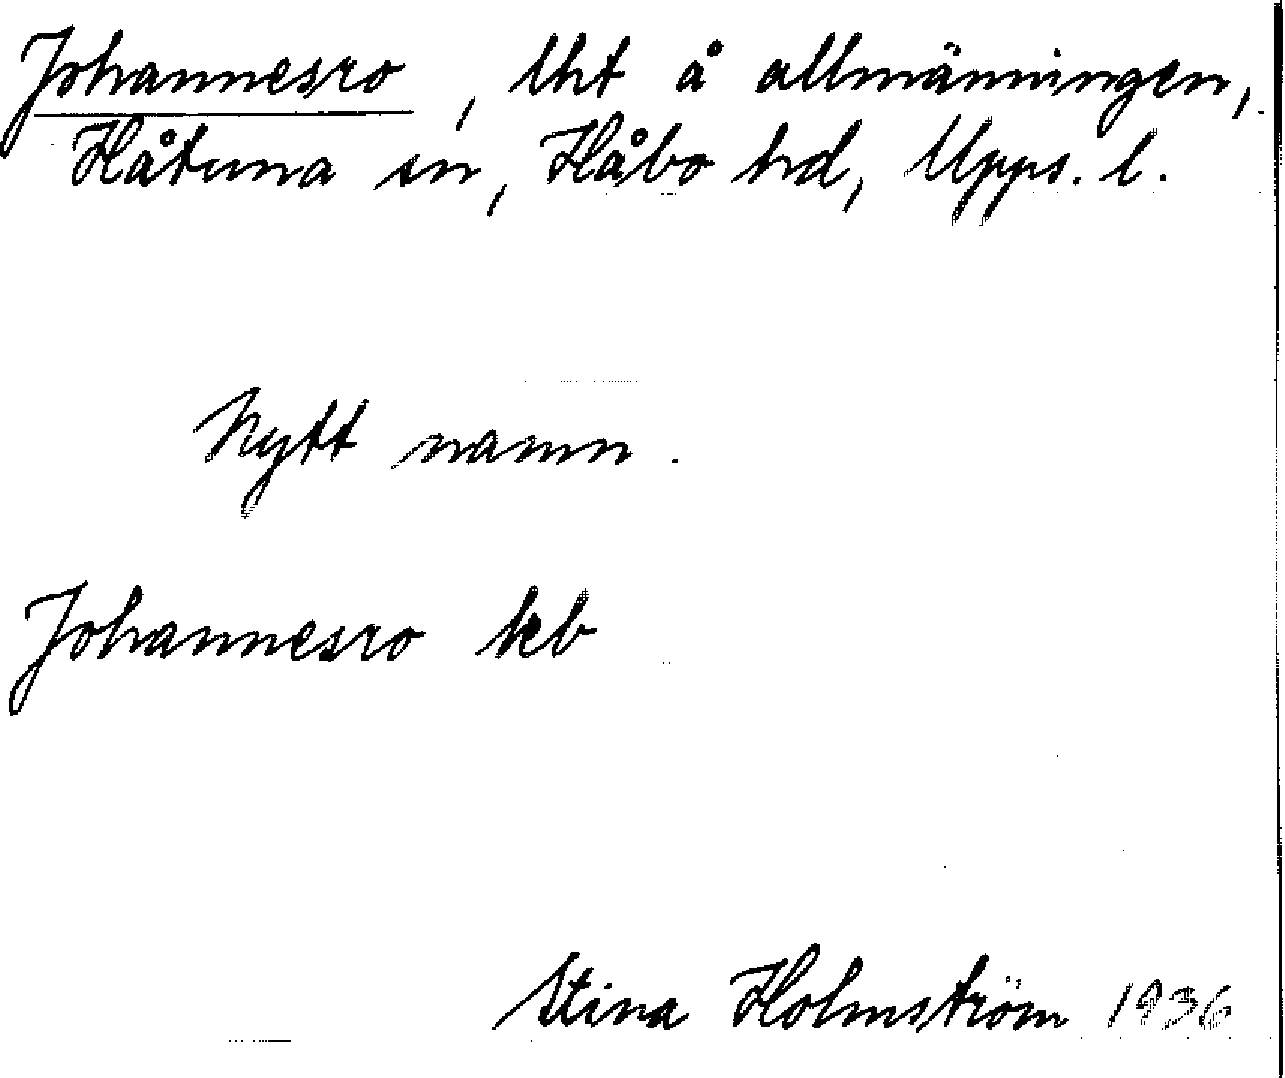 Johannesro, lht å allmänningen,
Håtuna sn, Håbo hd, Upps. l.
Nytt namn.
Johannesro kb
Stina Holmström 1936